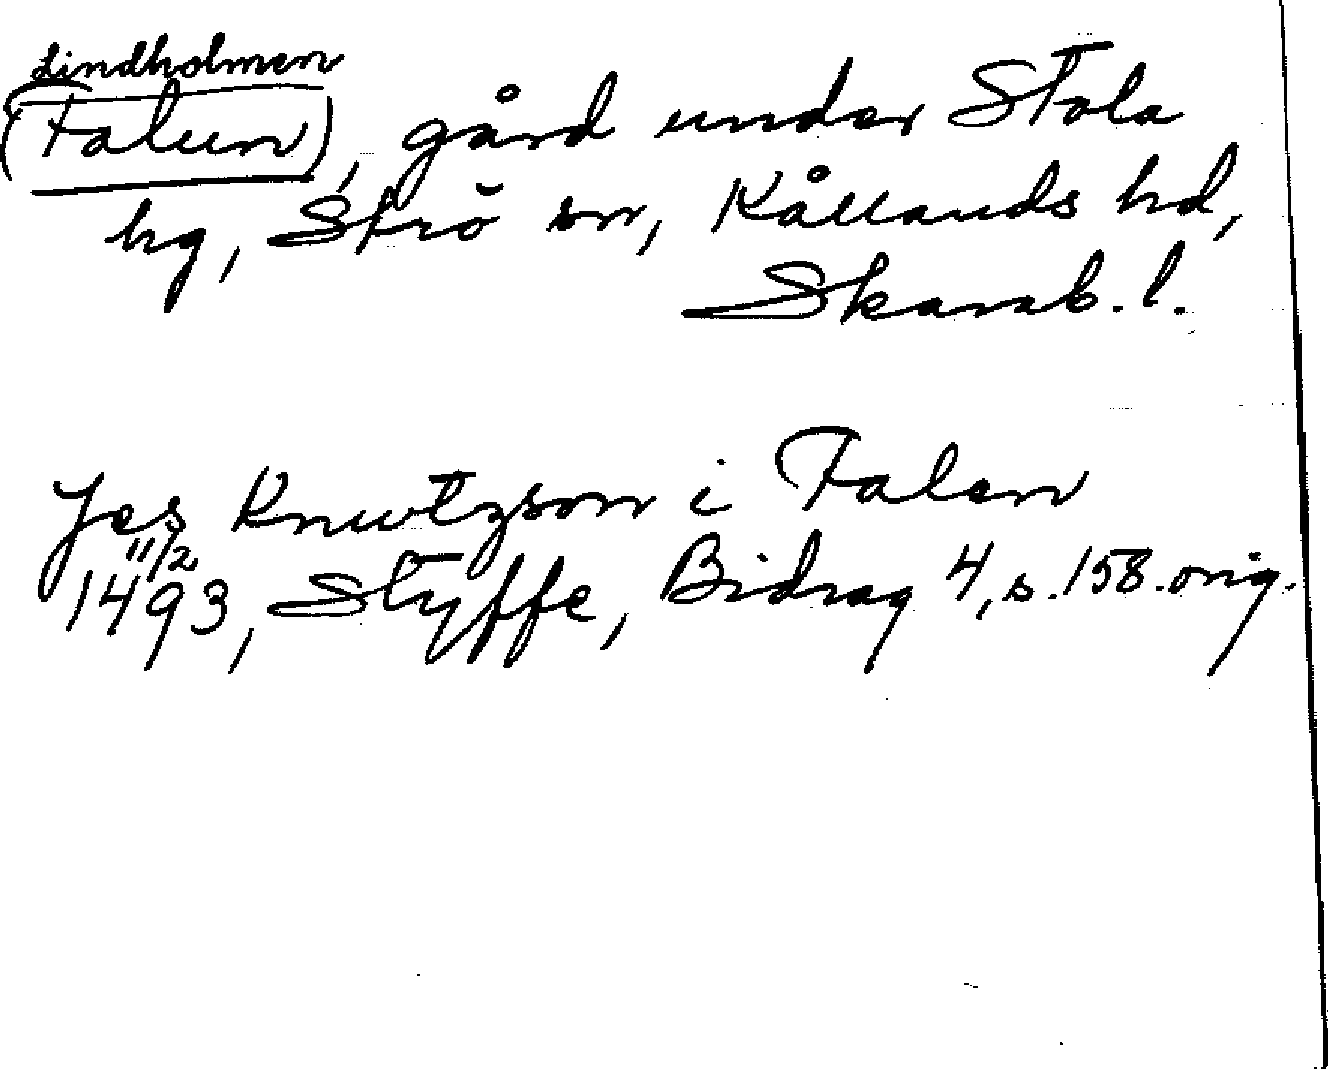 Lindholmen
(Falun), gård under Stola
hg, Strö sn, Kållands hd,
Skarab. l.
Jes Knwtzson i Falen
11/2
1493, Styffe, Bidrag 4, s. 158. orig.